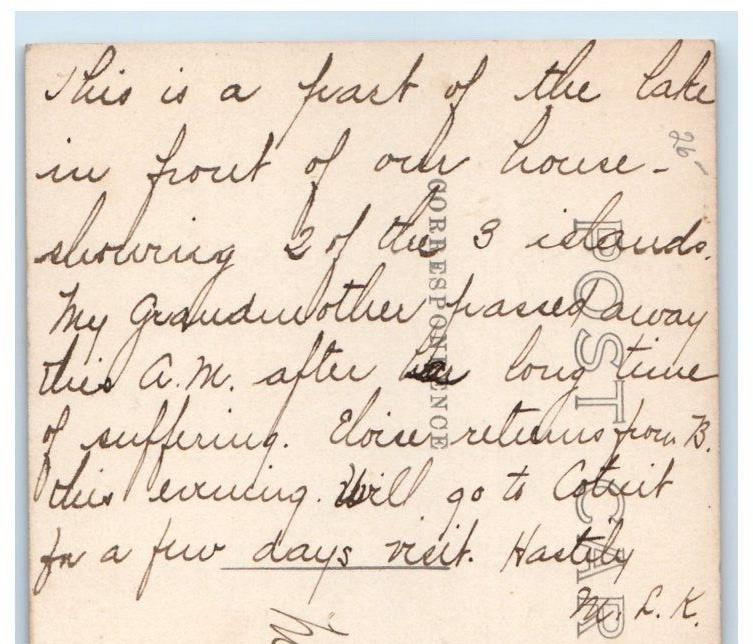 This is a part of the lake
in front of our house -
showing 2 of the 3 islands.
My Grandmother passed away
this A.M. after long time
of suffering. Eloise returns from B.
this evening. Will go to Cotuit
for a few days visit. Hastily
M. L. K.
CORRESPONDENCE
POST CAR